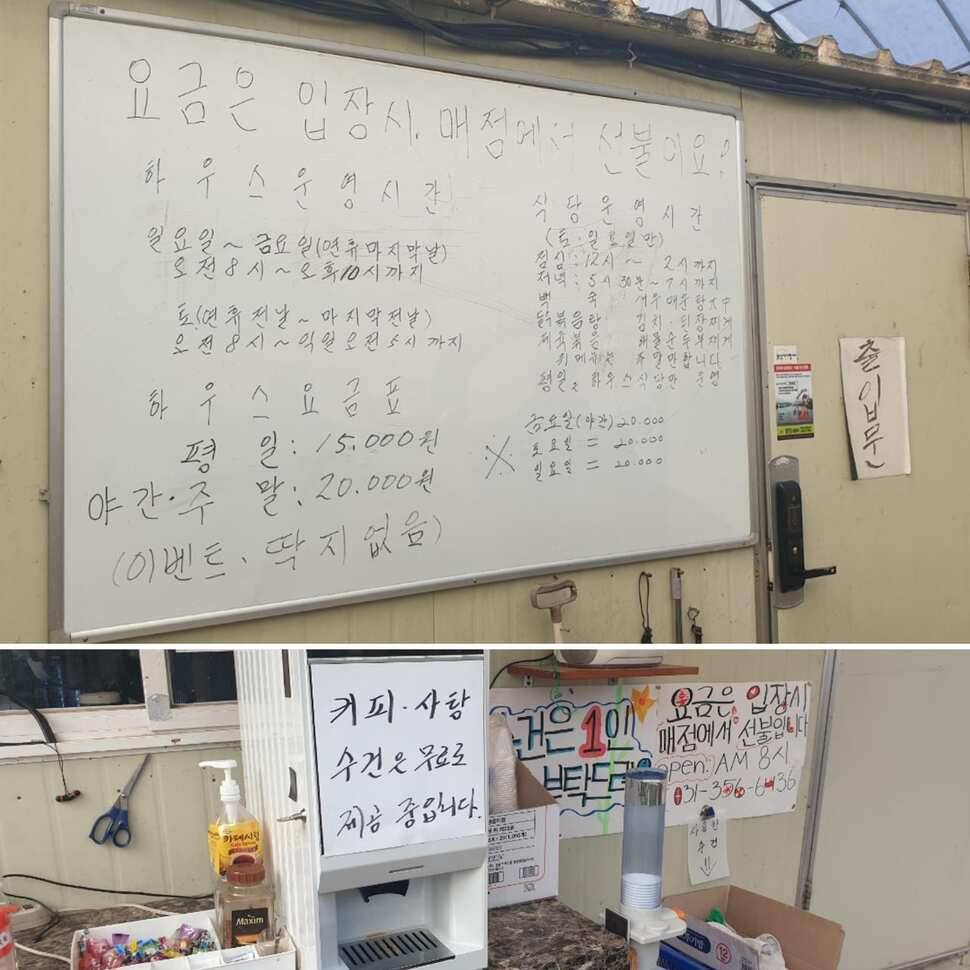 요금은 입장시, 매점에서 선불이요!
하우스운영시간
일요일~금요일(연휴마지막날)
오전8시~오후10시까지
토(연휴전날~마지막전날)
오전8시~익일오전5시까지
하우스요금표
평일: 15.000원
야간·주말: 20.000원
(이벤트·딱지없음)
식당운영시간
(토·일요일만)
점심: 12시~2시까지
저녁: 5시30분~7시까지
백국 새우매운탕
닭볶음탕 김치·된장찌개
제육볶음 해물순두부찌개
주말만합니다
평일, 하우스식당만 운영
※ 금요일(야간) 20.000
토요일 = 20.000
일요일 = 20.000
출입문
커피·사탕
수건은 무료로
제공 중입니다.
수건은 1인
부탁드려
요금은 입장시
매점에서 선불입니다
open: AM 8시
031-356-6436
사용한
수건
카페시럽
Maxim